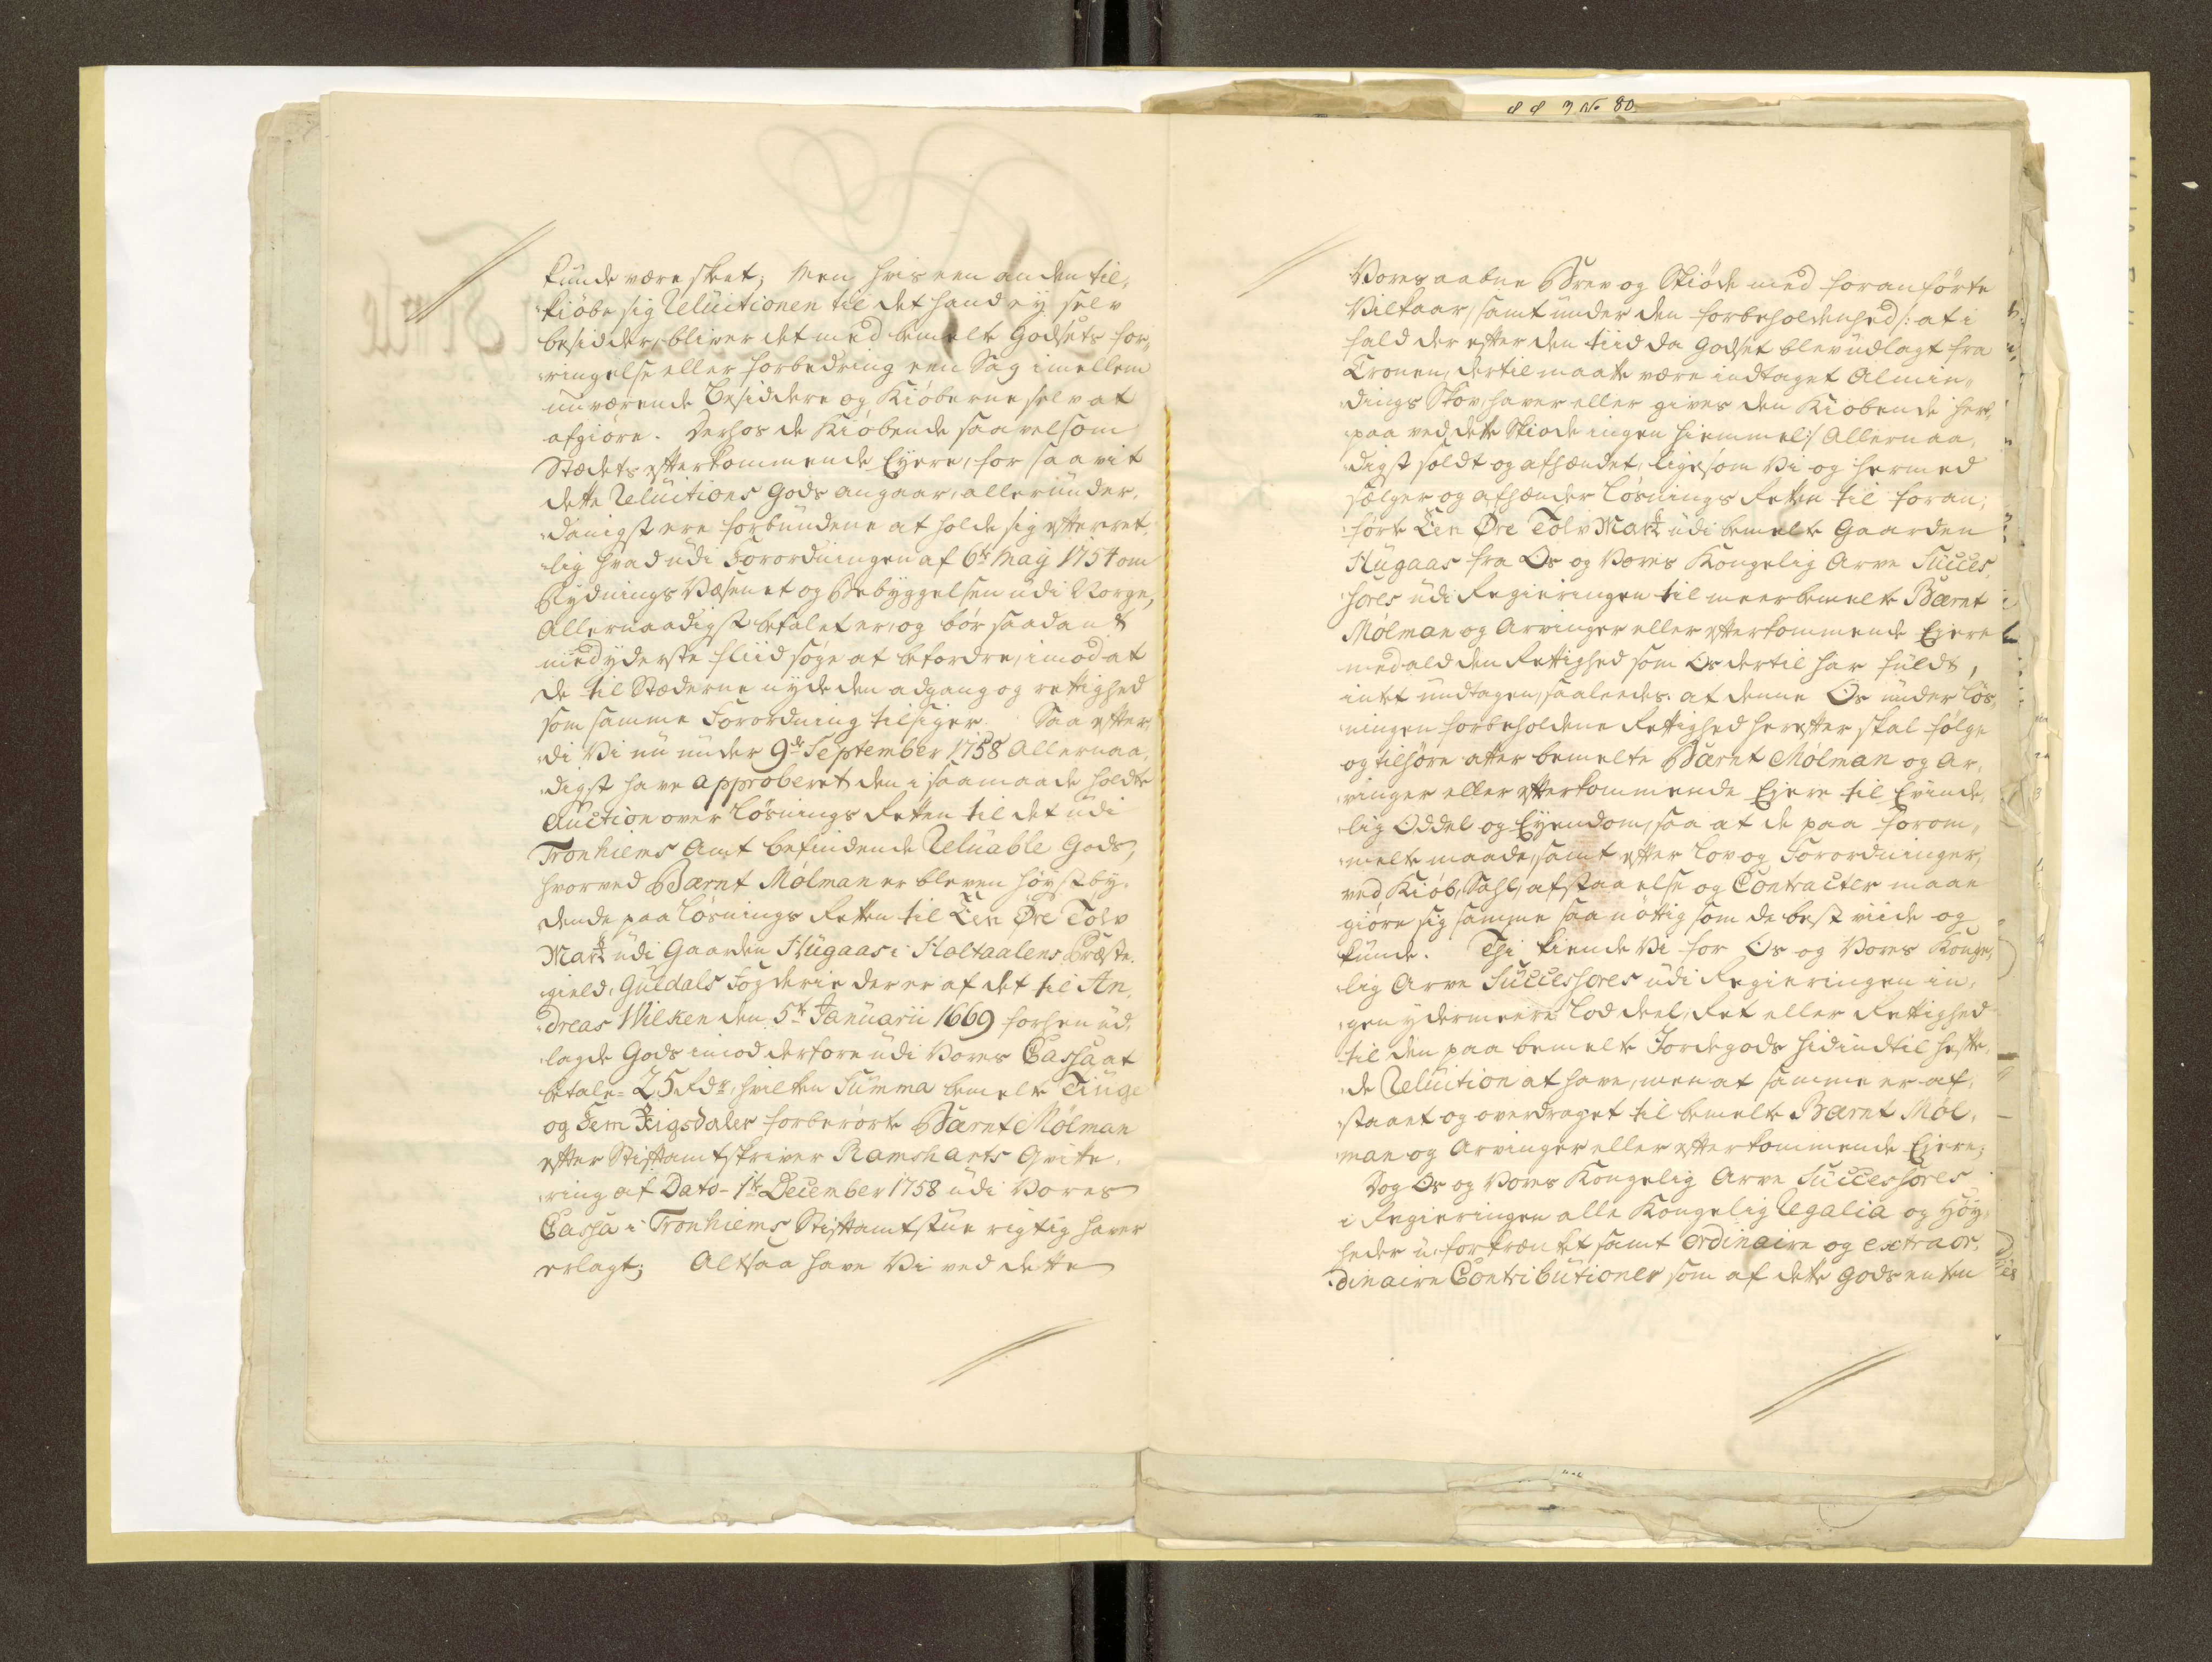 kunde være skeet; Men hvis een anden til,
„kiøbe sig Reluitionen til det hand ey selv
besidder, bliver det med bemelte Godsets for,
„ringelse eller forbedring een Sag imellem
nuværende Besiddere og Kiøberne selv at
afgiøre. Derhos de Kiøbende saavelsom
Stædets efterkommende Eyere, for saavit
dette Reluitions Gods angaar, allerunder,
„danigst ere forbundene at holde sig efterret,
„lig hvad udi Forordningen af 6te May 1754 om
Rydnings Væsenet og Bebyggelsen udi Norge,
Allernaadigst befalet er, og bør saadant
med yderste fliid søge at befordre, imod at
de til Stæderne nyde den adgang og rettighed
som samme Forordning tilsiger. Saa efter,
„di Vi nu under 9de September 1758 Allernaa,
„digst have approberet den i saamaade holdte
Auction over Løsnings Retten til det udi
Tronhiems Amt befindende Reluable Gods,
hvorved Barnt Mølman er bleven høystby,
„dende paa Løsnings Retten til Een Øre Tolv
Mark udi Gaarden Hugaas i Holtaalens Præste,
„gield, Guldals Fogderie der er af det til An,
„dreas Wilken den 5te Januarii 1669 forhen ud,
„lagde Gods imod derfore udi Vores Cassa at
betale = 25 Rdr, hvilken Summa bemelte Tiuge
og Fem Rigsdaler forberørte Barnt Mølman
efter Stiftamtskriver Ramsharts Qvite,
„ring af Dato - 1te December 1758 udi Vores
Cassa i Tronhiems Stiftamtstue rigtig haver
erlagt; Altsaa have Vi ved dette
No 80
Vores aabne Brev og Skiøde med foranførte
Vilkaar, samt under den forbeholdenhed /: at i
fald der efter den tiid da Godset blev udlagt fra
Cronen, dertil maatte være indtaget Almin,
„dings Skov, haver eller gives den Kiøbende her,
„paa ved dette Skiøde ingen hiemmel :/ Allernaa,
„digst soldt og afhændet, ligesom Vi og hermed
sælger og afhænder Løsnings Retten til foran,
„førte Een Øre Tolv Mark udi bemelte Gaarden
Hugaas fra Os og Vores Kongelig Arve Succes,
„sores udi Regieringen til meerbemelte Barnt
Mølman og Arvinger eller efterkommende Eyere
med ald den Rettighed som Os dertil har fuldt,
intet undtagen, saaleedes at denne Os under Løs,
„ningen forbeholdene Rettighed herefter skal følge
og tilhøre atter bemelte Barnt Mølman og Ar,
„vinger eller efterkommende Ejere til Evinde,
„lig Oddel og Eyendom, saa at de paa forom,
„melte maade, samt efter Lov og Forordninger,
ved Kiøb, Sahl, afstaaelse og Contracter maae
giøre sig samme saa nøttig som de best viide og
kunde. Thi kiende Vi for Os og Vores Konge,
„lig Arve Successores udi Regieringen in,
„gen ydermeere Lod deel, Ret eller Rettighed
til den paa bemelte Jordegods hidindtil hefte,
„de Reluition at have, men at samme er af,
„staaet og overdraget til bemelte Barnt Møl,
„man og Arvinger eller efterkommende Ejere;
Dog Os og Vores Kongelig Arve Successores
i Regieringen alle Kongelig Regalia og Høy,
„heder u-forkrænket samt ordinaire og extraor,
„dinaire Contributioner som af dette Gods enten